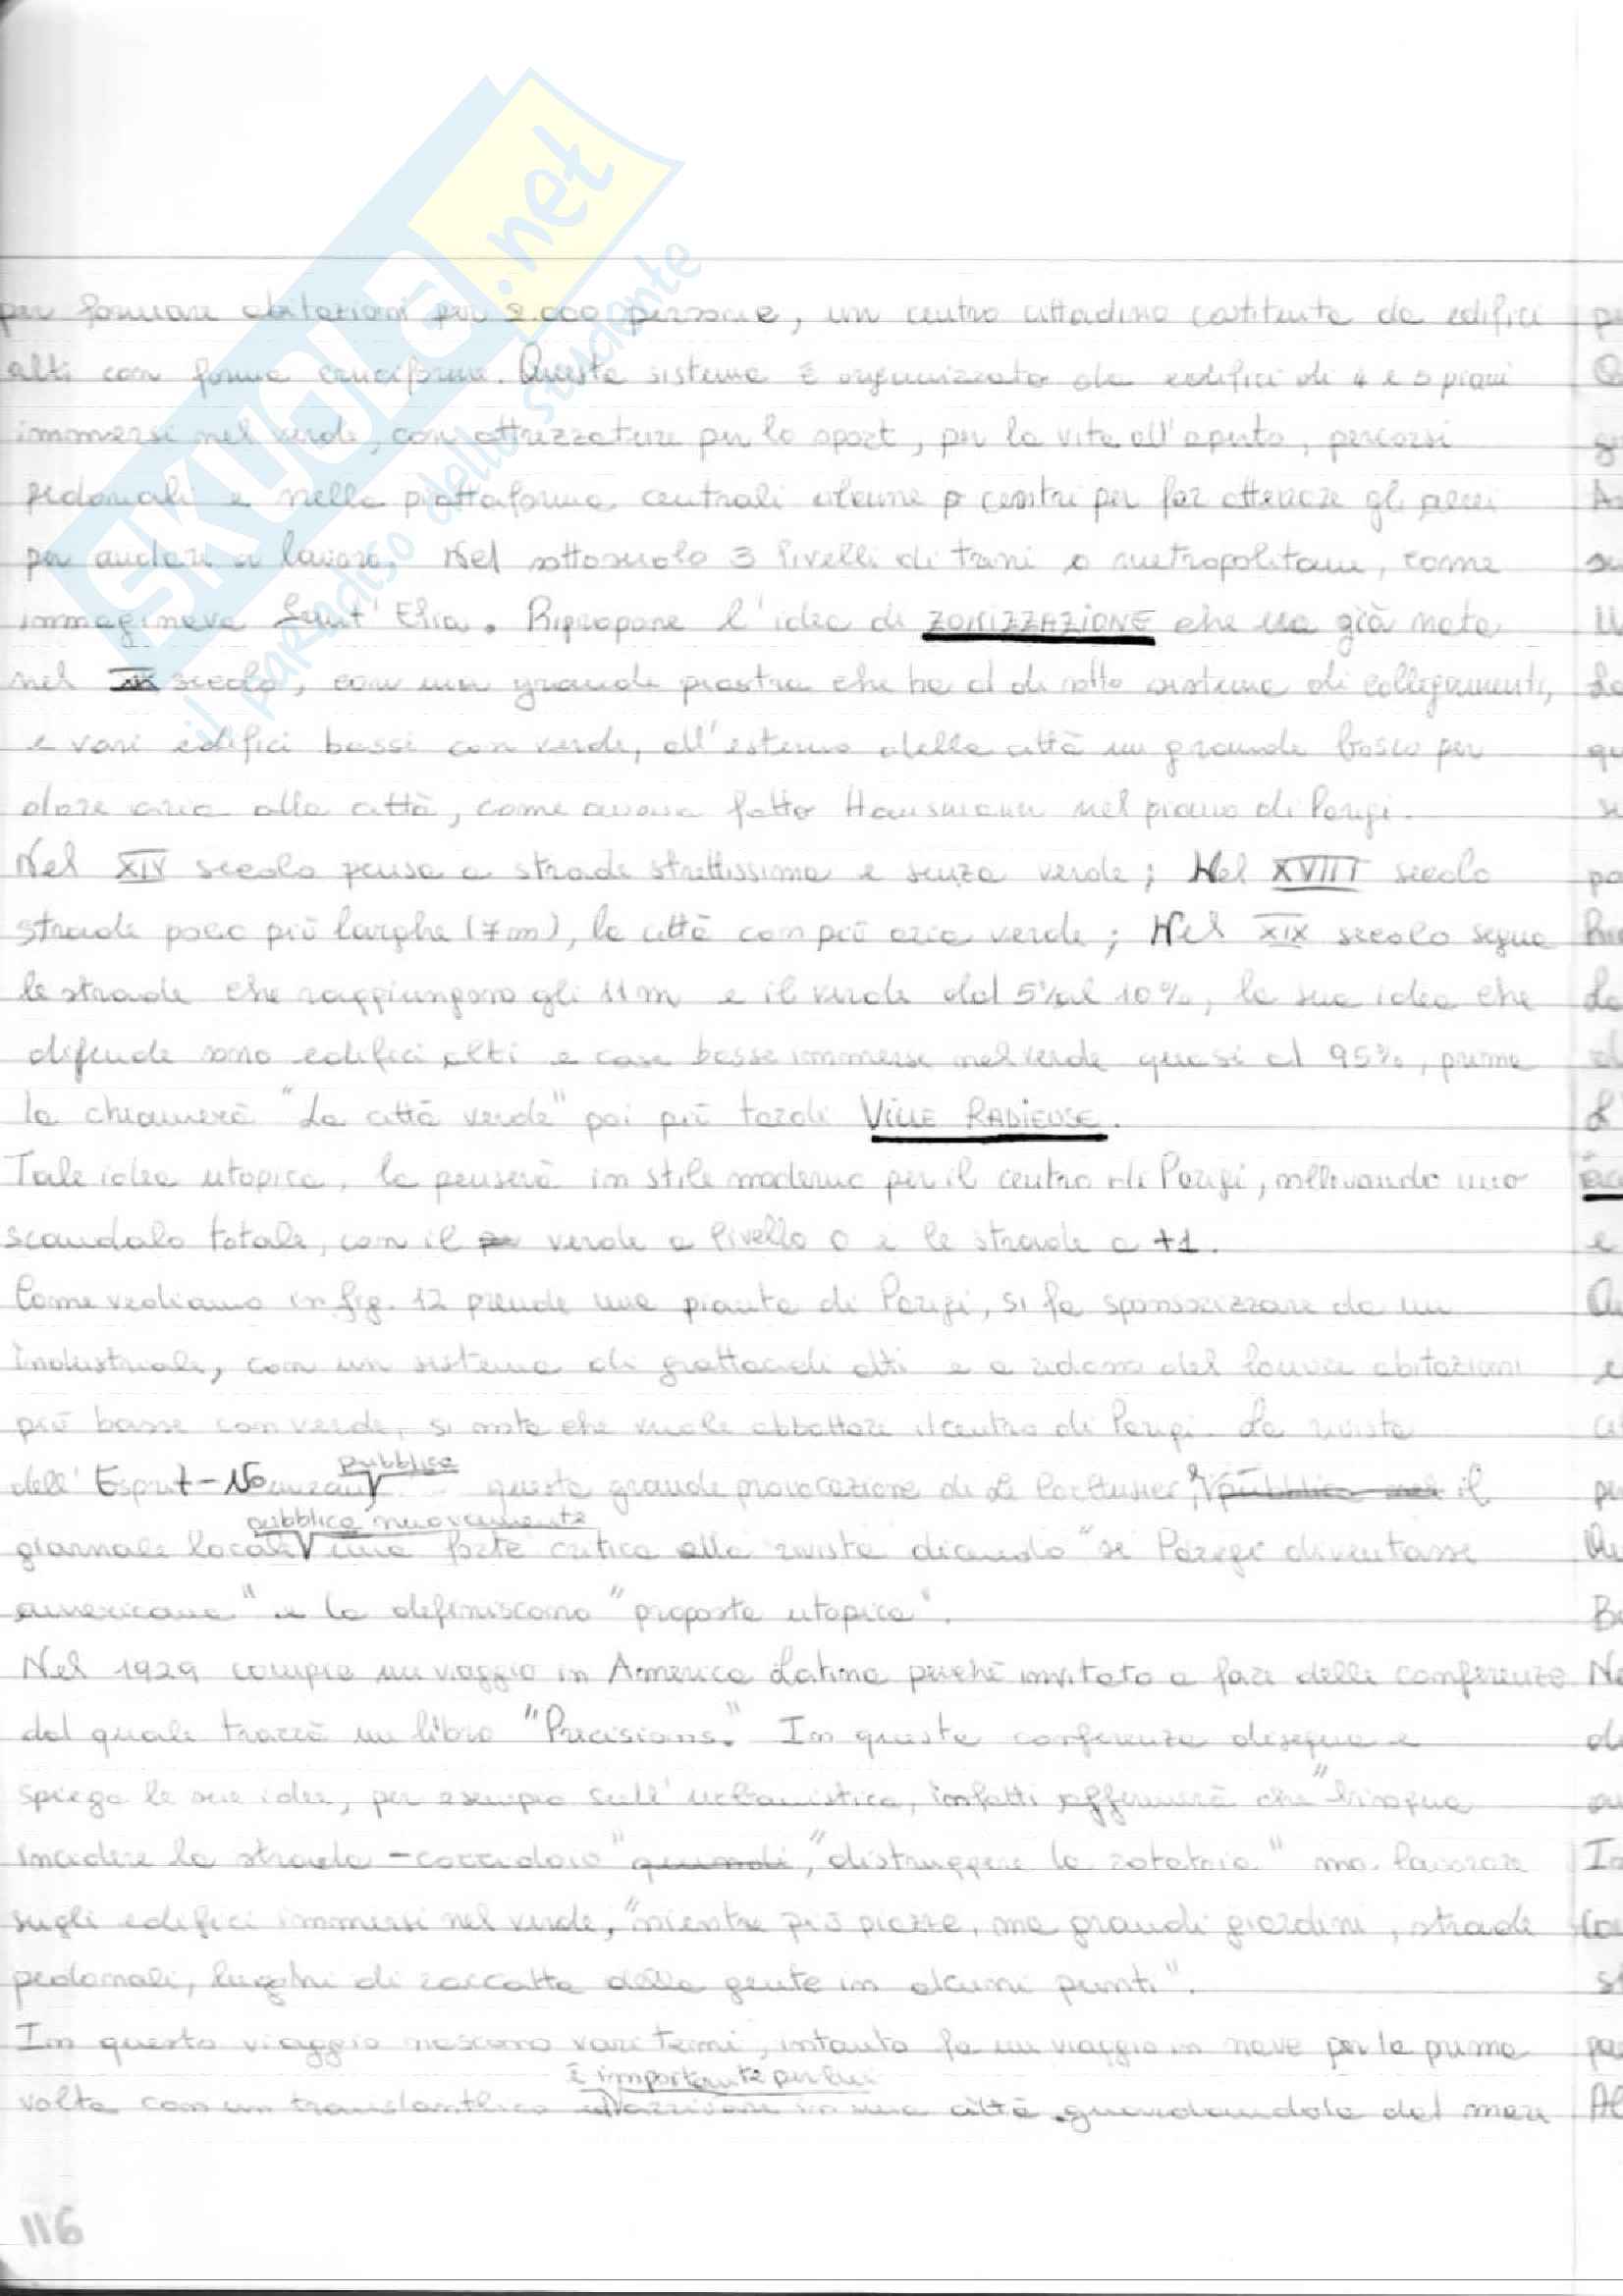 SKUOLA.net
il paradiso dello studente
per formare abitazioni per 2.000 persone, un centro cittadino costituito da edifici
alti con forma cruciforme. Questo sistema è organizzato da edifici di 4 e 5 piani
immersi nel verde, con attrezzature per lo sport, per la vita all'aperto, percorsi
pedonali e nella piattaforma centrali alcune centri per far atterrare gli aerei
per andare a lavoro. Nel sottosuolo 3 livelli di treni o metropolitane, come
immaginava Sant'Elia. Ripropone l'idea di ZONIZZAZIONE che era già nata
nel secolo, con una grande piastra che ha al di sotto sistema di collegamenti,
e vari edifici bassi con verde, all'esterno della città un grande bosco per
dare aria alla città, come aveva fatto Hausmann nel piano di Parigi.
Nel XIV secolo pensa a strade strettissime e senza verde; Nel XVIII secolo
strade poco più larghe (7m), la città con più aria verde; Nel XIX secolo segue
le strade che raggiungono gli 11m e il verde dal 5% al 10%, la sua idea che
difende sono edifici alti e case basse immerse nel verde quasi al 95%, prima
la chiamerà "La città verde" poi più tardi VILLE RADIEUSE.
Tale idea utopica, la penserà in stile moderno per il centro di Parigi, sollevando uno
scandalo totale, con il verde a livello 0 e le strade a +1.
Come vediamo in fig. 12 prende una pianta di Parigi, si fa sponsorizzare da un
industriale, con un sistema di grattacieli alti e a ridosso del Louvre abitazioni
più basse con verde, si nota che vuole abbattere il centro di Parigi. La rivista
dell'Esprit-Nouveau pubblica questa grande provocazione di Le Corbusier, il
giornale locale pubblica nuovamente una forte critica alla rivista dicendo "se Parigi diventasse
americana" e la definiscono "proposta utopica".
Nel 1929 compie un viaggio in America Latina perché invitato a fare delle conferenze
dal quale trarrà un libro "Precisions." In questa conferenza disegna e
spiega le sue idee, per esempio sull'urbanistica, infatti affermerà che "bisogna
incidere la strada-corridoio", "distruggere la rotatoia" ma lavorare
sugli edifici immersi nel verde, "niente più piazze, ma grandi giardini, strade
pedonali, luoghi di raccolta della gente in alcuni punti".
In questo viaggio nascono vari temi, intanto fa un viaggio in nave per la prima
volta con un translantlico è importante per lui arrivare in una città guardandola dal mare
116